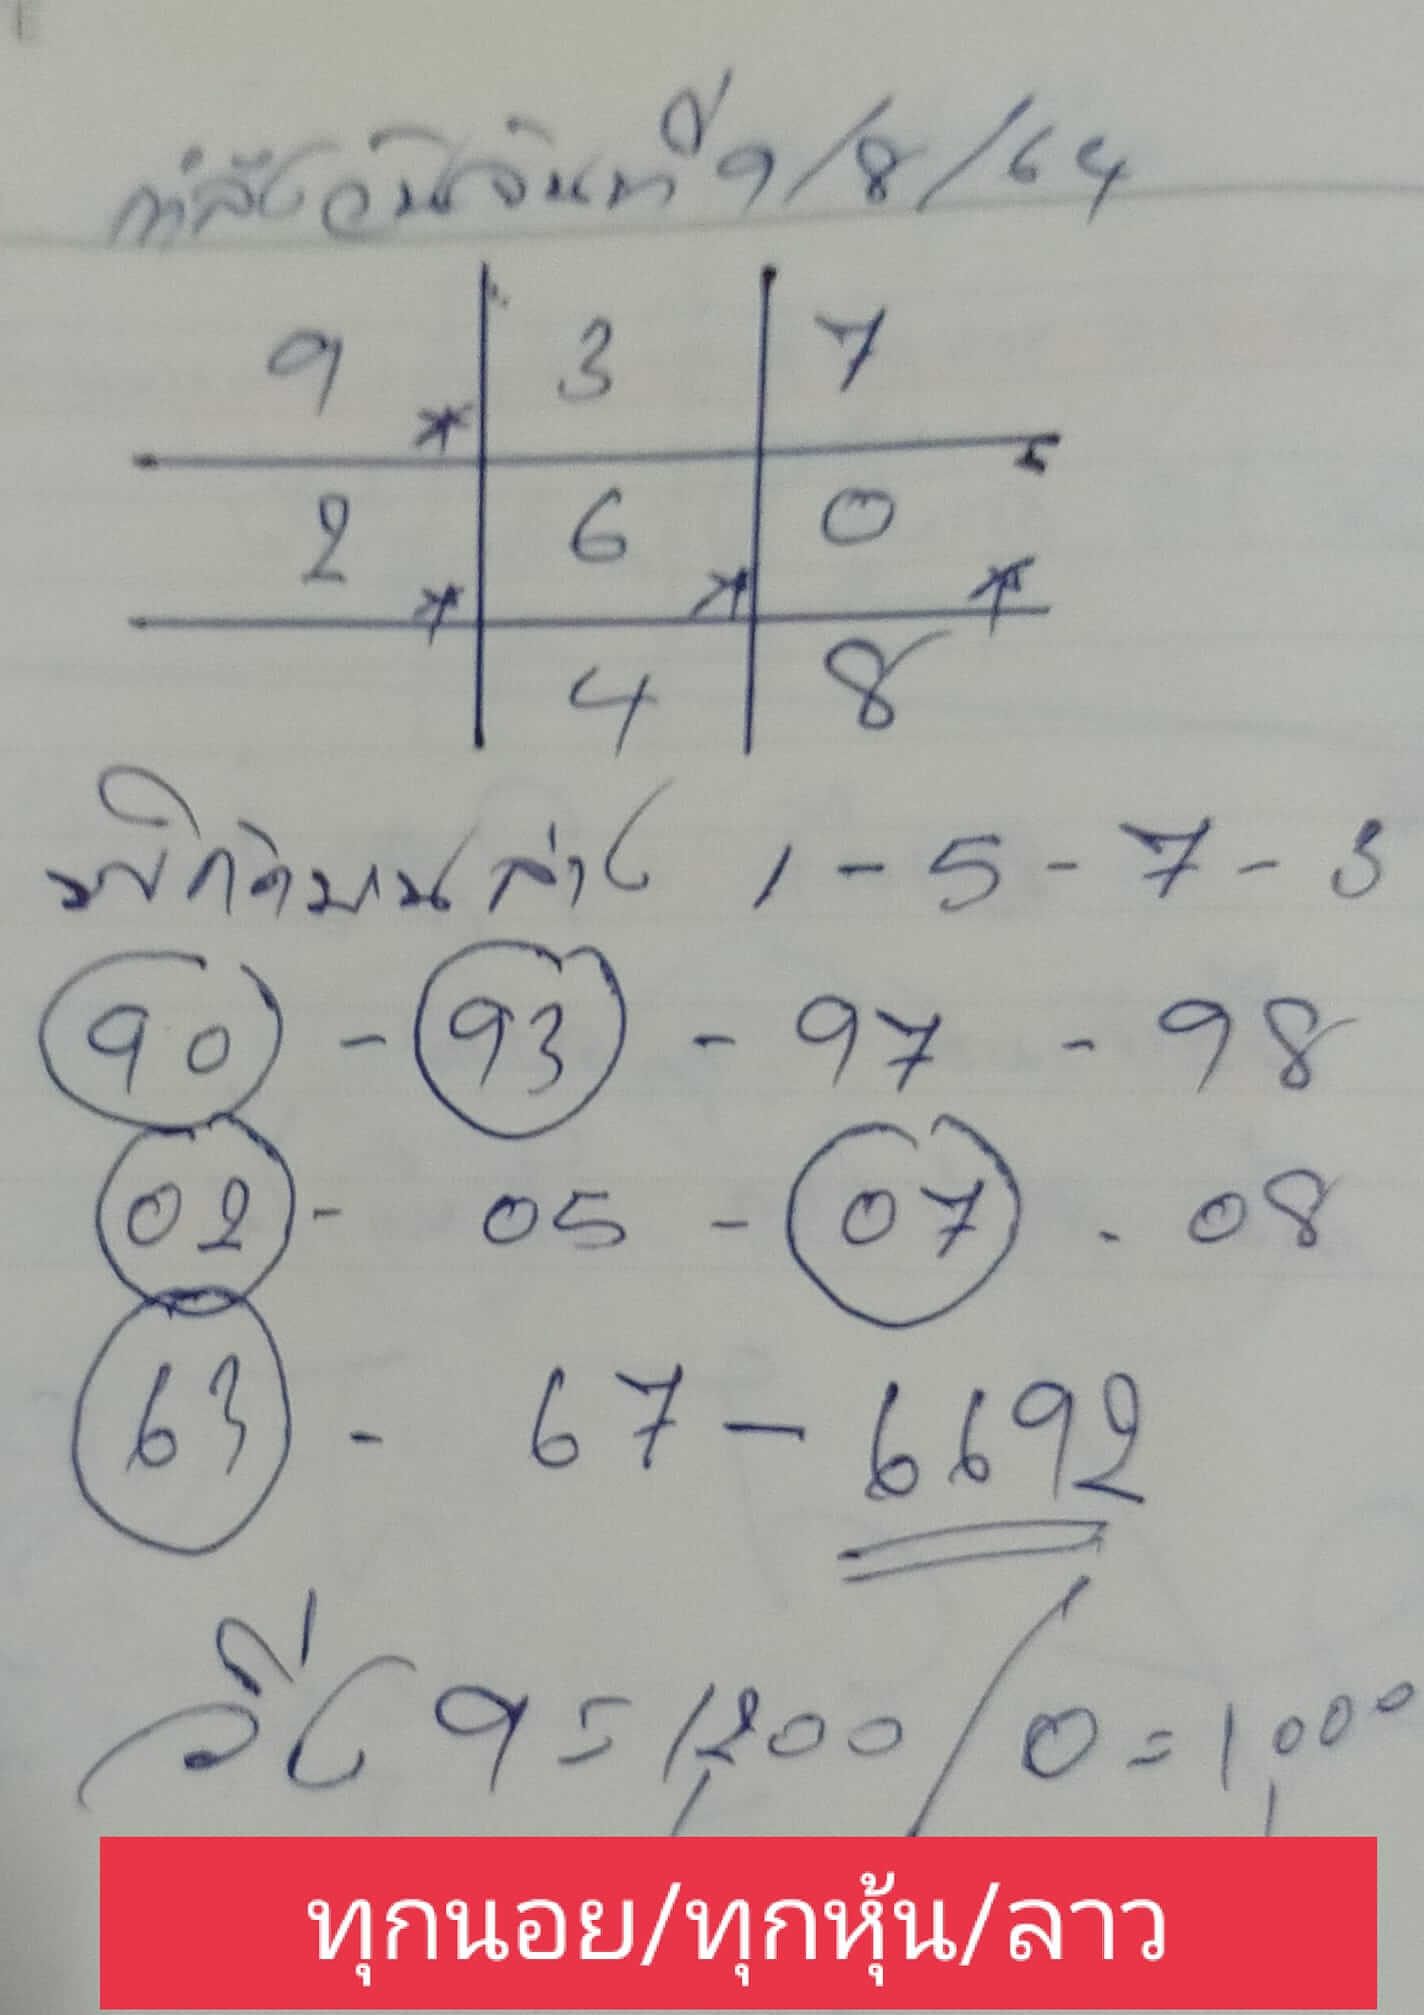 กำลังวันจันทร์ที่ 9/8/64
9 3 7
2 6 0
4 8
บน ล่าง 1-5-7-3
90 - 93 - 97 - 98
02 - 05 - 07 - 08
63 - 67 - 6692
วิ่ง 9 = 1,200 / 0 = 1,000
ทุกนอย/ทุกหุ้น/ลาว